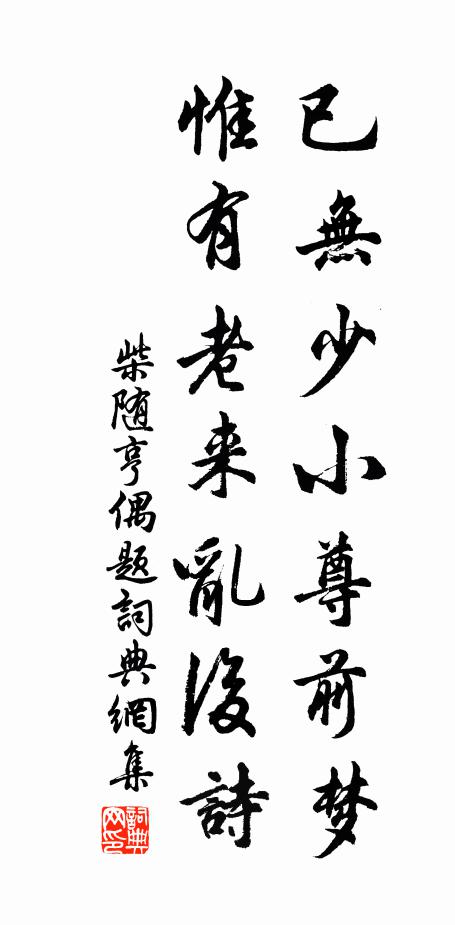 已無少小尊前梦
惟有老来亂後詩
柴随亨偶题詞典網集
詞典网印